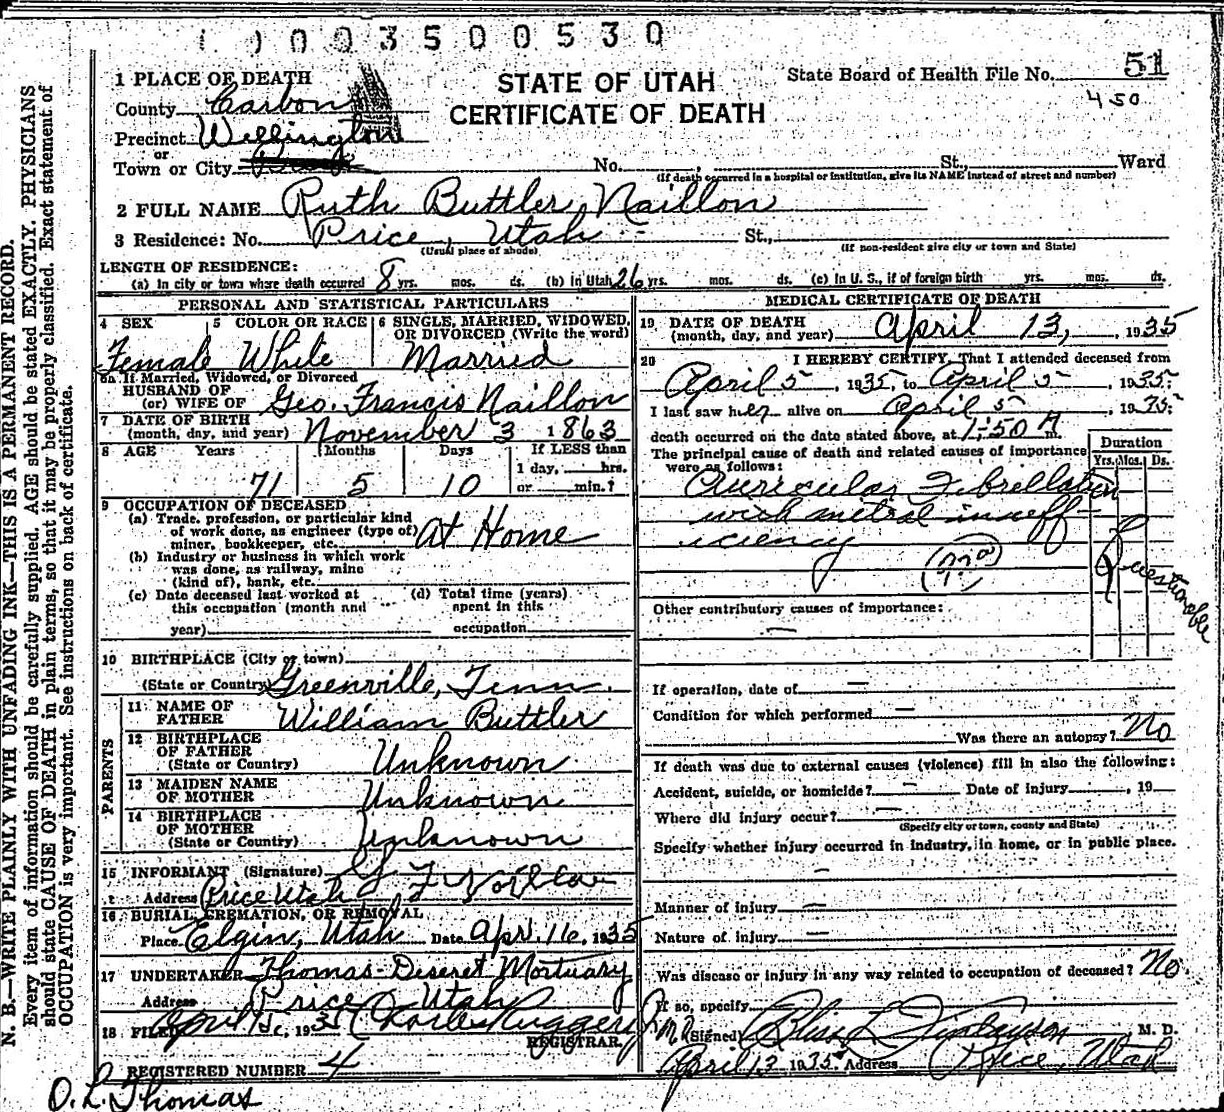 0 0 3 5 0 0 5 3 0
1 PLACE OF DEATH
STATE OF UTAH
CERTIFICATE OF DEATH
State Board of Health File No. 51
450
County Carbon
Precinct Wellington
or
Town or City No. , St., Ward
(If death occurred in a hospital or institution, give its NAME instead of street and number)
2 FULL NAME Ruth Buttler Naillon
3 Residence: No. Price, Utah St.,
(Usual place of abode) (If non-resident give city or town and State)
LENGTH OF RESIDENCE:
(a) In city or town where death occurred 8 yrs. mos. ds. (b) In Utah 26 yrs. mos. ds. (c) In U. S., if of foreign birth yrs. mos. ds.
PERSONAL AND STATISTICAL PARTICULARS
4 SEX 5 COLOR OR RACE 6 SINGLE, MARRIED, WIDOWED,
OR DIVORCED (Write the word)
Female White Married
6a If Married, Widowed, or Divorced
HUSBAND OF
(or) WIFE OF Geo. Francis Naillon
7 DATE OF BIRTH
(month, day, and year) November 3 1863
8 AGE Years Months Days If LESS than
1 day, hrs.
71 5 10 or min.?
9 OCCUPATION OF DECEASED
(a) Trade, profession, or particular kind
of work done, as engineer (type of)
miner, bookkeeper, etc. At Home
(b) Industry or business in which work
was done, as railway, mine
(kind of), bank, etc.
(c) Date deceased last worked at (d) Total time (years)
this occupation (month and spent in this
year) occupation
10 BIRTHPLACE (City or town)
(State or Country) Greenville, Tenn.
PARENTS
11 NAME OF
FATHER William Buttler
12 BIRTHPLACE
OF FATHER
(State or Country) Unknown
13 MAIDEN NAME
OF MOTHER Unknown
14 BIRTHPLACE
OF MOTHER
(State or Country) Unknown
15 INFORMANT (Signature) G F Naillon
Address Price Utah
16 BURIAL, CREMATION, OR REMOVAL
Place Elgin, Utah Date Apr. 16, 1935
17 UNDERTAKER Thomas-Deseret Mortuary
Address Price Utah
18 FILED April 1935 Charles Ruggeri
REGISTRAR.
REGISTERED NUMBER 4
O. L. Thomas
MEDICAL CERTIFICATE OF DEATH
19 DATE OF DEATH
(month, day, and year) April 13, 1935
20 I HEREBY CERTIFY, That I attended deceased from
April 5, 1935, to April 5, 1935.
I last saw her alive on April 5, 1935.
death occurred on the date stated above, at 1:50 A m.
The principal cause of death and related causes of importance
were as follows:
Duration
Yrs. Mos. Ds.
Auricular Fibrellation
with mitral insuff-
iciency
Questionable
Other contributory causes of importance:
If operation, date of
Condition for which performed
Was there an autopsy? No
If death was due to external causes (violence) fill in also the following:
Accident, suicide, or homicide? Date of injury , 19
Where did injury occur?
(Specify city or town, county and State)
Specify whether injury occurred in industry, in home, or in public place.
Manner of injury
Nature of injury
Was disease or injury in any way related to occupation of deceased? No.
If so, specify
(Signed) Bliss L. Finlayson, M. D.
April 13 1935 Address Price, Utah
N. B.—WRITE PLAINLY WITH UNFADING INK—THIS IS A PERMANENT RECORD.
Every item of information should be carefully supplied. AGE should be stated EXACTLY. PHYSICIANS
should state CAUSE OF DEATH in plain terms, so that it may be properly classified. Exact statement of
OCCUPATION is very important. See instructions on back of certificate.